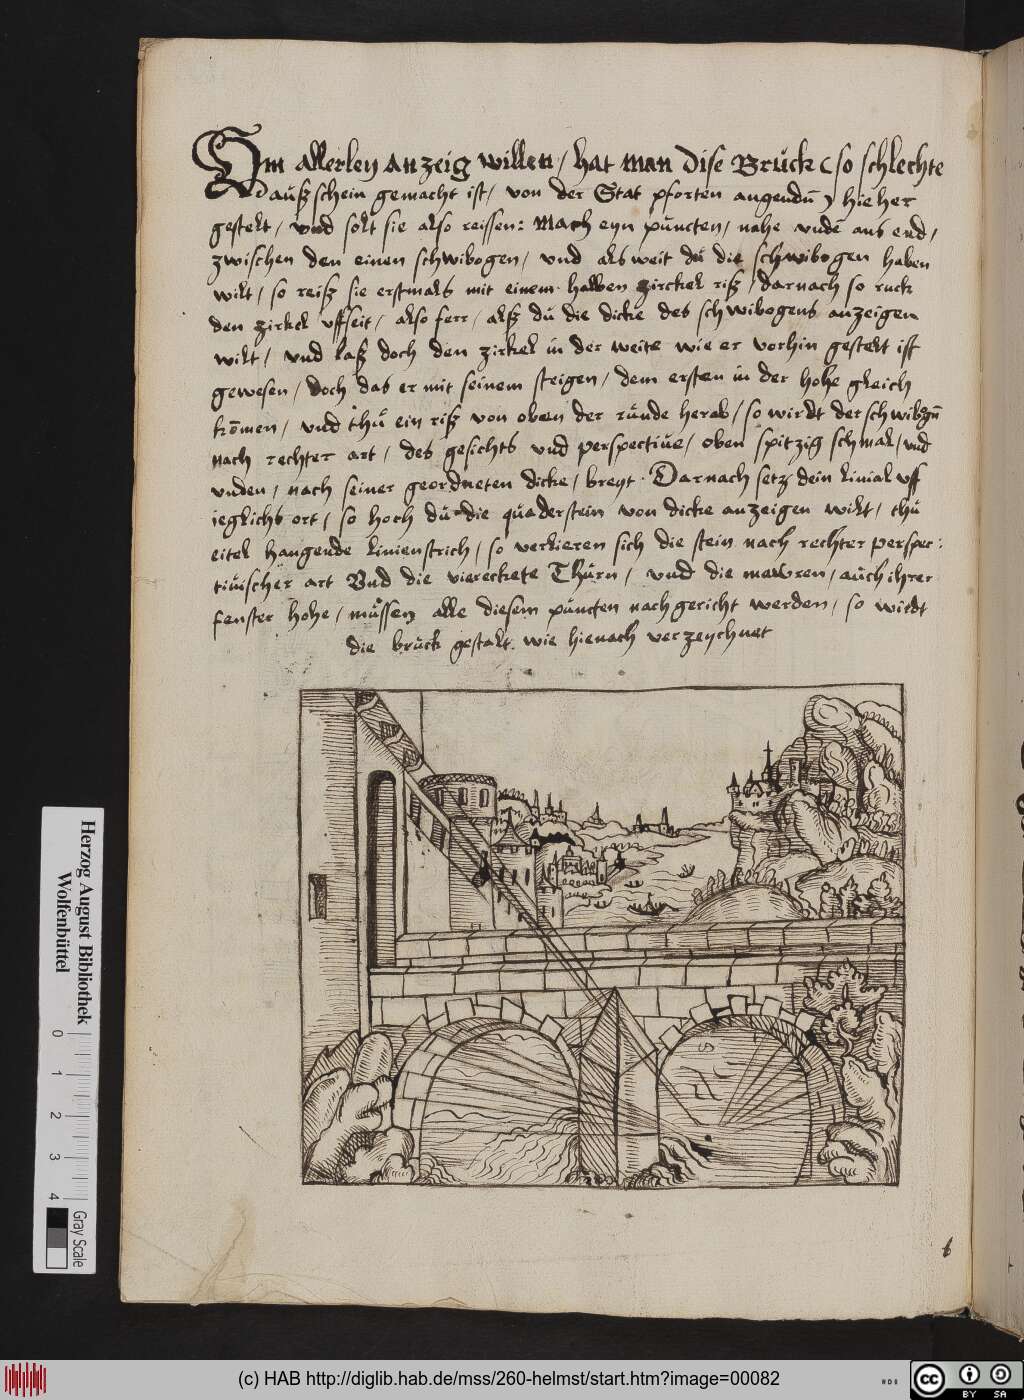 Um allerley anzeig willen / hat man dise Bruck (so schlechts
daußschein gemacht ist / von der Stat pforten angendū) hieher
gestelt / vnd solt sie also reissen: Mach eyn puncten / nahe vnde ans end /
zwischen den einen schwibogen / vnd als weit du die schwibogen haben
wilt / so reiß sie erstmals mit einem halben zirckel riß / darnach so ruck
den zirkel vffseit / also ferr / alß du die dicke des schwibogens anzeigen
wilt / vnd laß doch den zirkel in der weite wie er vorhin gestelt ist
gewesen / doch das er mit seinem steigen / dem ersten in der hohe gleich
kōmen / vnd thu ein riß von oben der runde herab / so wirdt der schwibogē
nach rechter art / des gesichts vnd perspective / oben spitzig schmal / vnd
vnden / nach seiner geordneten dicke / breyt. Darnach setz dein linial vff
ieglichs ort / so hoch du die quaderstein von dicke anzeigen wilt / thu
eitel hangende linienstrich / so verlieren sich die stein nach rechter perspec:
tivischer art Vnd die viereckete Thurn / vnd die mewren / auch ihrer
fenster hohe / mussen alle diesem puncten nachgericht werden / so wirdt
die bruck gestalt wie hienach verzeychnet
6
Herzog August Bibliothek
Wolfenbüttel
0 1 2 3 4
Gray Scale
(c) HAB http://diglib.hab.de/mss/260-helmst/start.htm?image=00082
cc BY SA